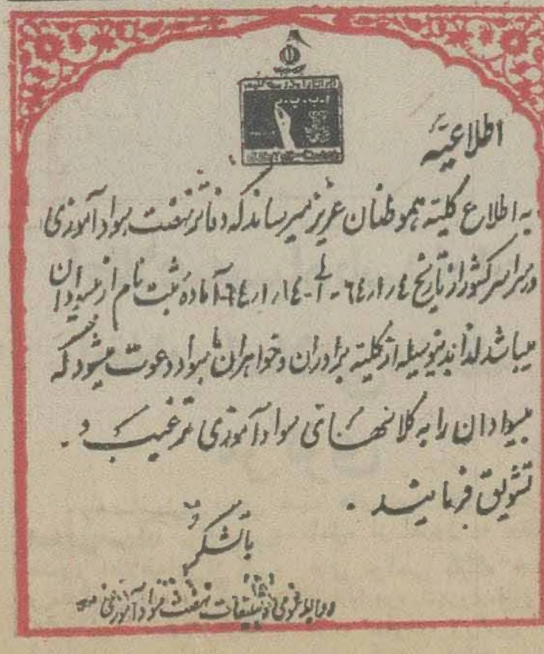 اطلاعیه
به اطلاع کلیه هموطنان عزیز میرساند که دفاتر نهضت سواد آموزی
در سراسر کشور از تاریخ ٦٤/١/٤ - الی - ٦٤/١/١٤ آماده ثبت نام از بیسوادان
میباشد لذا بدینوسیله از کلیه برادران و خواهران باسواد دعوت میشود که
بیسوادان را به کلاسهای سواد آموزی ترغیب و
تشویق فرمایند .
با تشکر
روابط عمومی و تبلیغات نهضت سواد آموزی